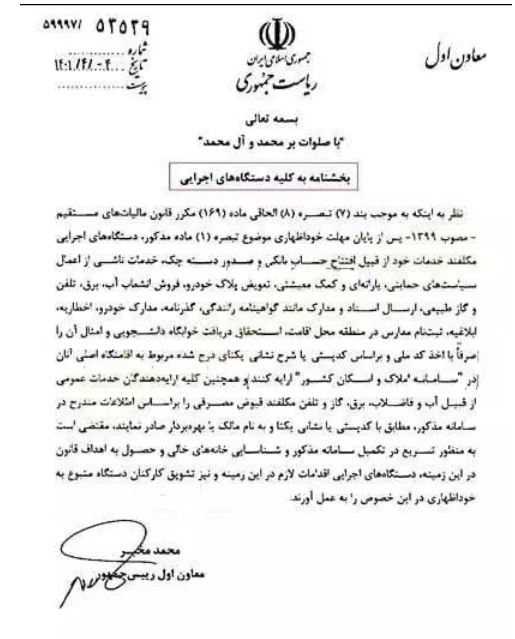 ۵۲۵۲۹ /۵۹۹۹۷
شماره
تاریخ ۱۴۰۱/۴/۰۴
پیوست
جمهوری اسلامی ایران
ریاست جمهوری
معاون اول
بسمه تعالی
"با صلوات بر محمد و آل محمد"
بخشنامه به کلیه دستگاه‌های اجرایی
نظر به اینکه به موجب بند (۷) تبصره (۸) الحاقی ماده (۱۶۹) مکرر قانون مالیات‌های مستقیم
- مصوب ۱۳۹۹- پس از پایان مهلت خوداظهاری موضوع تبصره (۱) ماده مذکور، دستگاه‌های اجرایی
مکلفند خدمات خود از قبیل افتتاح حساب بانکی و صدور دسته چک، خدمات ناشی از اعمال
سیاست‌های حمایتی، یارانه‌ای و کمک معیشتی، تعویض پلاک خودرو، فروش انشعاب آب، برق، تلفن
و گاز طبیعی، ارسال اسناد و مدارک مانند گواهینامه رانندگی، گذرنامه، مدارک خودرو، اخطاریه،
ابلاغیه، ثبت‌نام مدارس در منطقه محل اقامت، استحقاق دریافت خوابگاه دانشجویی و امثال آن را
صرفاً با اخذ کد ملی و براساس کدپستی یا شرح نشانی یکتای درج شده مربوط به اقامتگاه اصلی آنان
در "سامانه املاک و اسکان کشور" ارایه کنند و همچنین کلیه ارایه‌دهندگان خدمات عمومی
از قبیل آب و فاضلاب، برق، گاز و تلفن مکلفند قبوض مصرفی را براساس اطلاعات مندرج در
سامانه مذکور، مطابق با کدپستی یا نشانی یکتا و به نام مالک یا بهره‌بردار صادر نمایند، مقتضی است
به منظور تسریع در تکمیل سامانه مذکور و شناسایی خانه‌های خالی و حصول به اهداف قانون
در این زمینه، دستگاه‌های اجرایی اقدامات لازم در این زمینه و نیز تشویق کارکنان دستگاه متبوع به
خوداظهاری در این خصوص را به عمل آورند.
محمد مخبر
معاون اول رییس جمهور